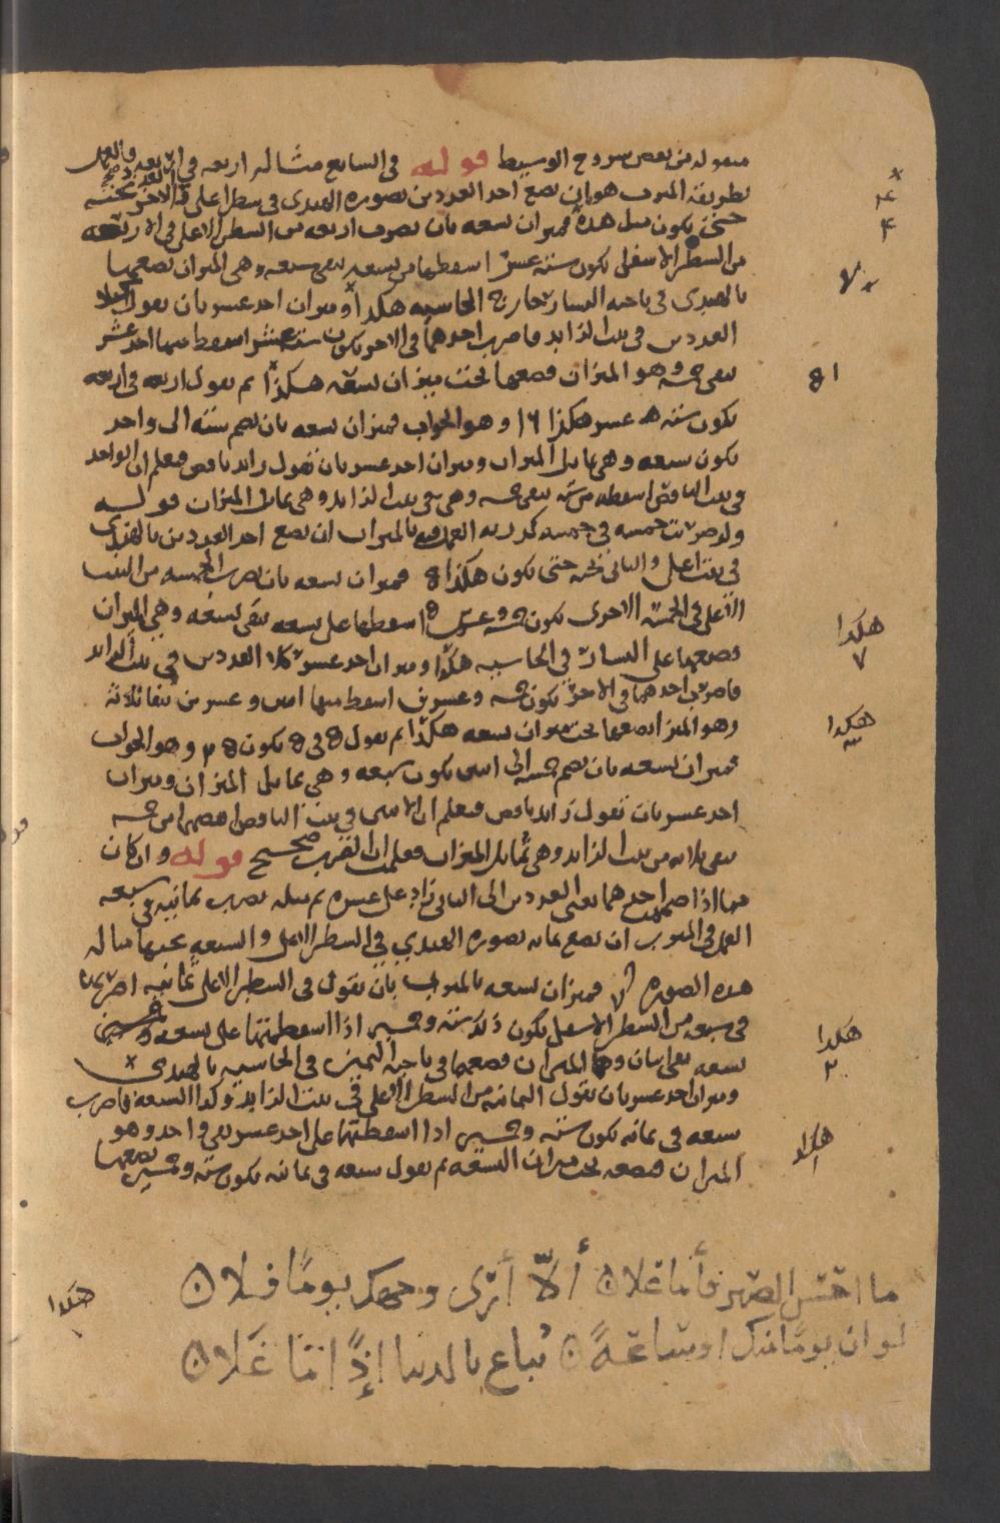 منقوله من بعض شروح الوسيط قوله في السابع مثاله اربعه في اربعه والعمل
بطريقة الضرب هو ان تضع احد العددين بصورة الهندى في سطر اعلى والاخر تحته
حتى يكون مثل هذه فميزان تسعه بان تضرب اربعه من السطر الاعلى في الاربعه
من السطر الاسفل يكون سته عشر اسقطها من تسعه يبقى سبعه وهي الميزان تضعها
بالهندى في ناحيه اليسار خارج الحاشيه هكذا وميزان احد عشر بان تقول كلا
العددين في بيت الزايد فاضرب احدهما في الاخر يكون سته عشر اسقط منها احد عشر
يبقى خمسه وهو الميزان فضعها تحت ميزان تسعه هكذا ثم تقول اربعه في اربعه
يكون سته عشر هكذا ١٦ وهو الجواب فميزان تسعه بان تضم سته الى واحد
يكون سبعه وهي تماثل الميزان وميزان احد عشر بان تقول زايد ناقص فعلم ان الواحد
في بيت الناقص اسقطه من سته يبقى خمسه وهي في بيت الزايد وهي تماثل الميزان قوله
ولو ضربت خمسه في خمسه كذلك العمل فيه بالميزان ان تضع احد العددين بالهندى
في بيت اعلى والثاني تحته حتى يكون هكذا فميزان تسعه بان تضرب الخمسه من البيت
الاعلى في الخمسه الاخرى يكون خمسه وعشرين اسقطها على تسعه يبقى سبعه وهي الميزان
فضعها على اليسار في الحاشيه هكذا وميزان احد عشر كلا العددين في بيت الزايد
فاضرب احدهما في الاخر يكون خمسه وعشرين اسقط منها اثنين وعشرين يبقا ثلاثة
وهو الميزان ضعها تحت ميزان تسعه هكذا ثم تقول 8 في 8 يكون ٢8 وهو الجواب
فميزان تسعه بان تضم خمسه الى اثنين يكون سبعه وهي تماثل الميزان وميزان
احد عشر بان تقول زايد ناقص فعلم ان الاثنين في بيت الناقص انقصها من خمسه
يبقى ثلاثه من بيت الزايد وهي تماثل الميزان فعلمت ان الضرب صحيح قوله وان كان
مما اذا ضممت احدهما يعني العددين الى الثاني زاد على عشره ثم مثله بضرب ثمانيه في سبعه
العمل في المضروب ان تضع ثمانيه بصورة الهندي في السطر الاعلى والسبعه تحتها مثاله
هذه الصوره فميزان تسعه بالمضروب بان تقول في السطر الاعلى ثمانيه اضربها
في سبعه من السطر الاسفل يكون ذلك سته وخمسين اذا اسقطتها على تسعه
تسعه يبقى اثنان وهما الميزان فضعها في ناحية اليمين في الحاشيه بالهندى
وميزان احد عشر بان تقول الثمانيه من السطر الاعلى في بيت الزايد وكذا السبعه فاضرب
سبعه في ثمانيه يكون سته وخمسين اذا اسقطتها على احد عشر يبقى واحد وهو
الميزان فضعه تحت ميزان التسعه ثم تقول سبعه في ثمانيه يكون سته وخمسين تضعها
ما احسن الصبر فأما علان ألّا أرى وجهك يومًا فلان
لو ان يومًا منك او ساعةً تباع بالدنيا اذًا ما غلان
٤
٤
٧
8١
هكذا
٧
هكذا
٣
هكذا
٢
هكذا
١
هكذا